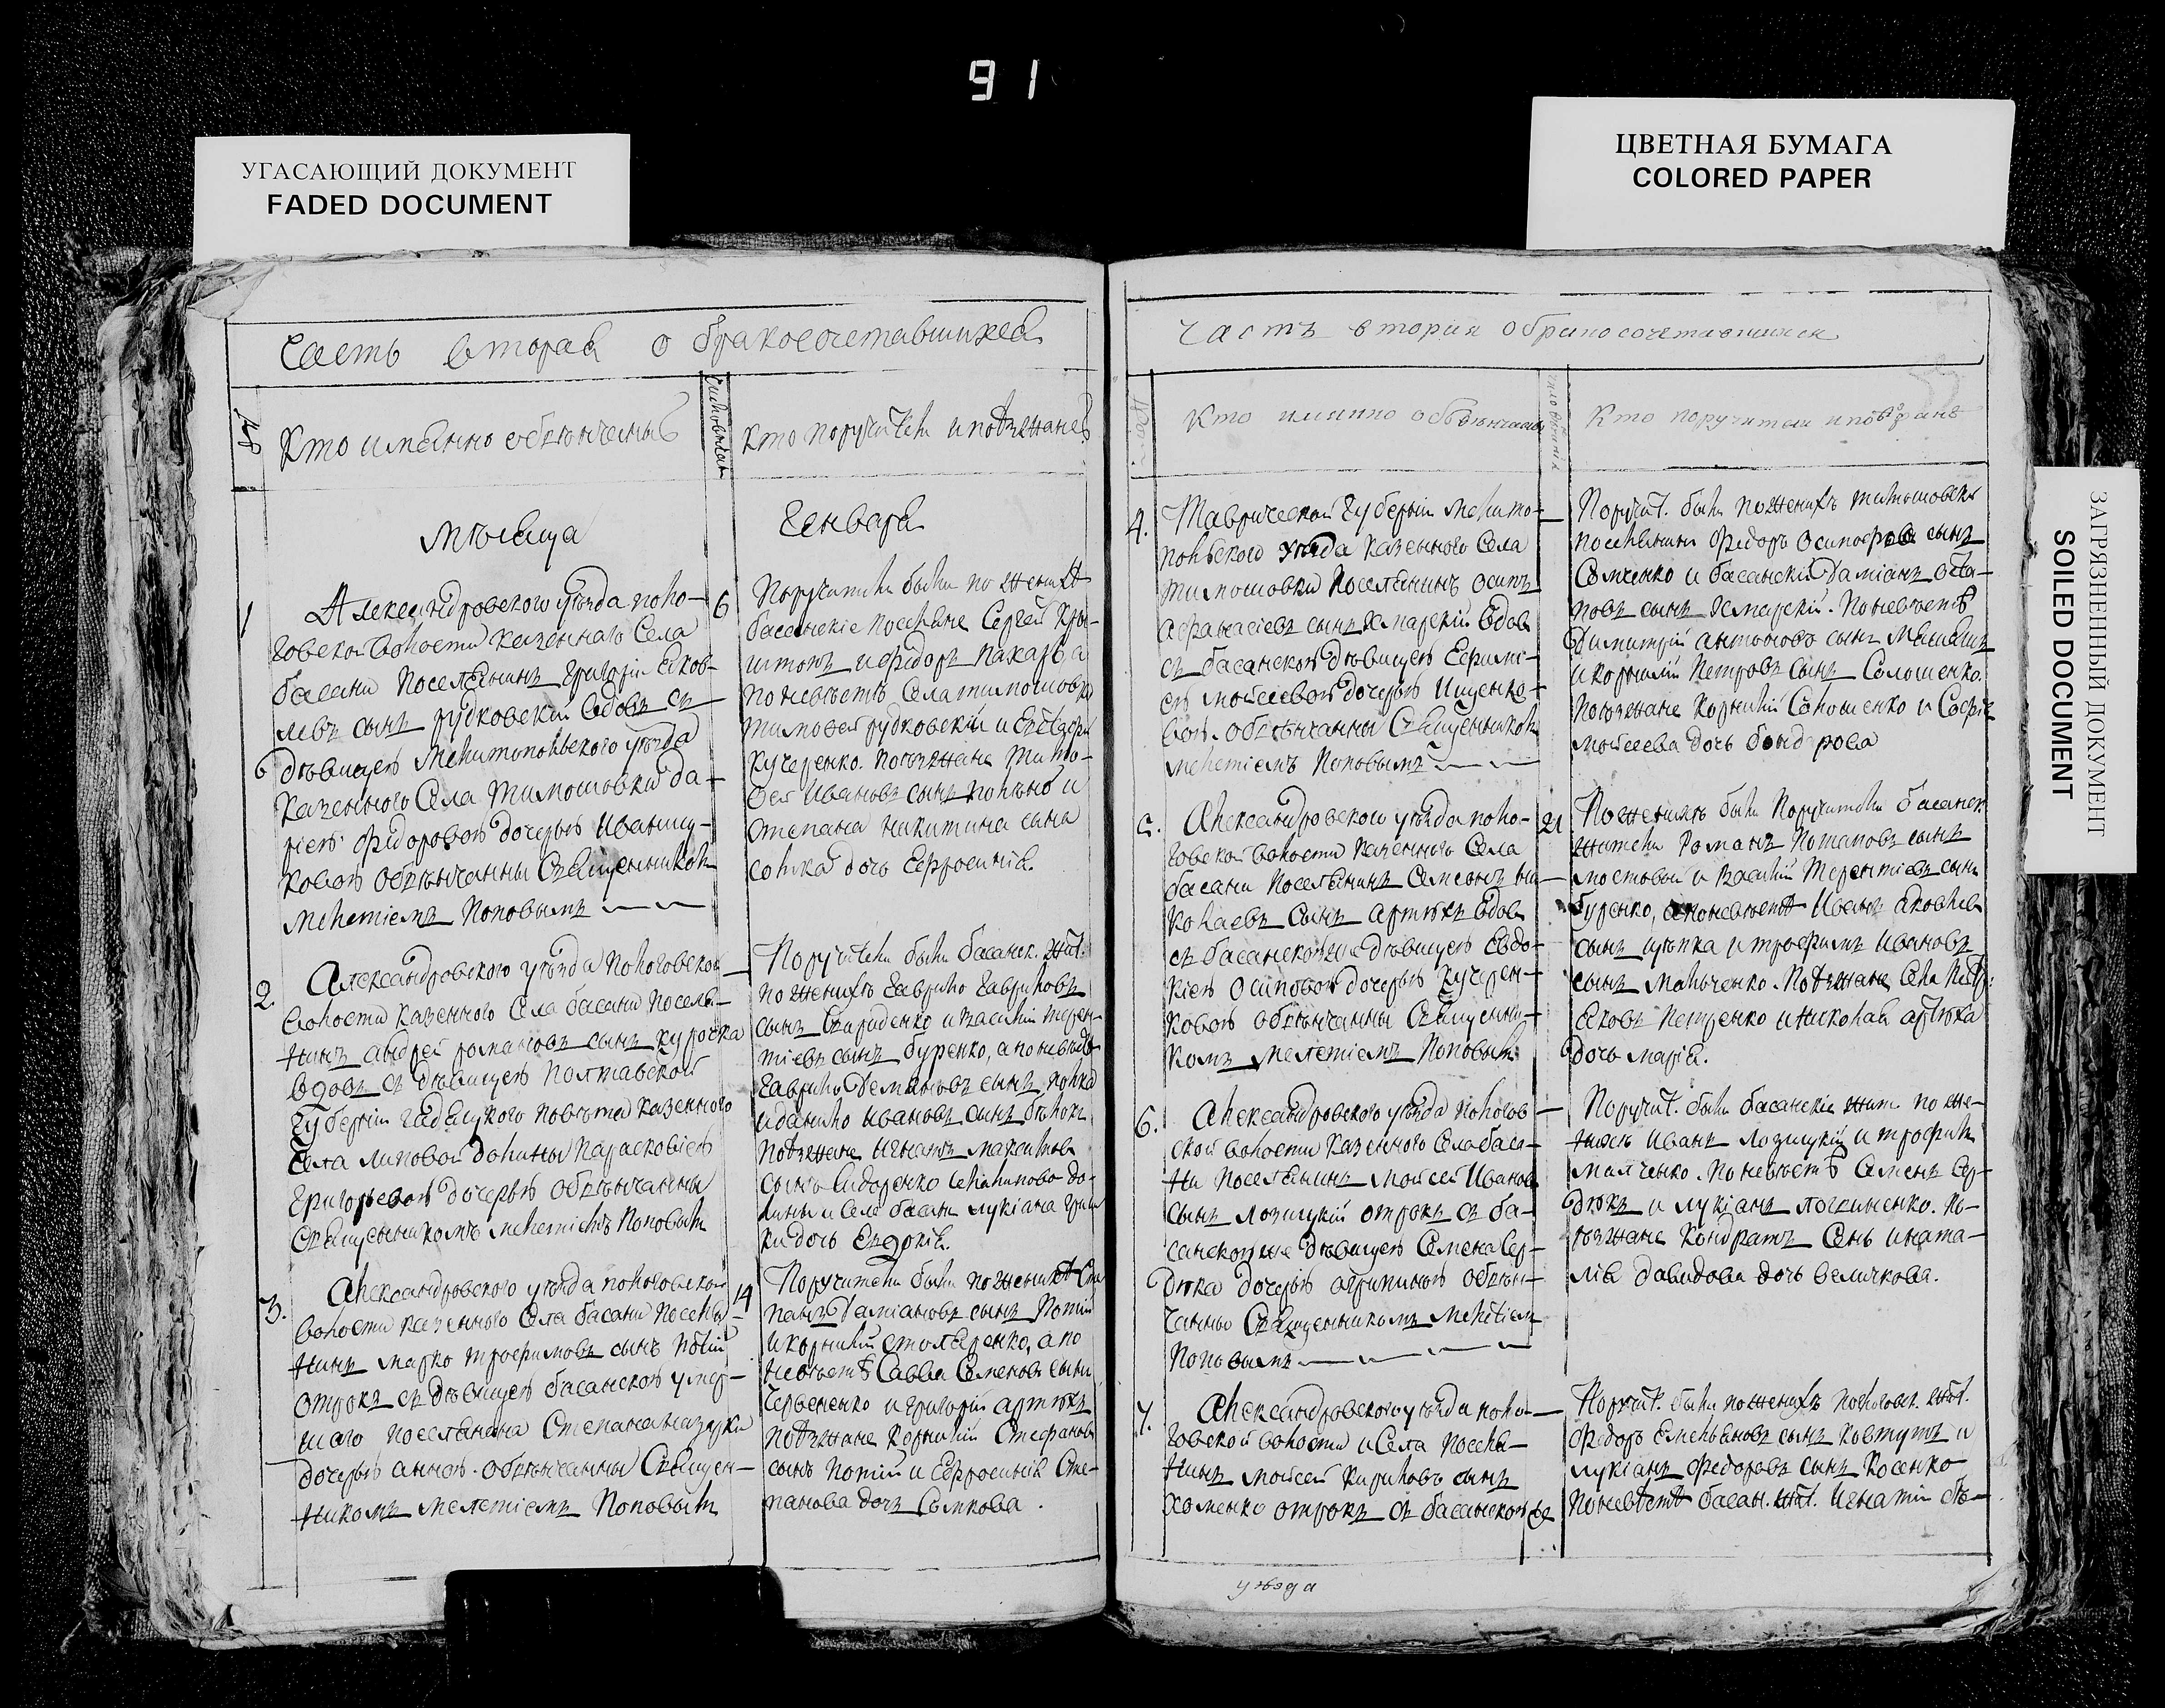 91
УГАСАЮЩИЙ ДОКУМЕНТ
FADED DOCUMENT
ЦВЕТНАЯ БУМАГА
COLORED PAPER
ЗАГРЯЗНЕННЫЙ ДОКУМЕНТ
SOILED DOCUMENT
Часть вторая о бракосочетавшихся
Кто имянно обвѣнчаны
Кто поручители и поѣзжане
мѣсяца
Генваря
1
Александровскаго уѣзда поло-
говской волости казеннаго села
басани поселянинъ григорій яков-
левъ сынъ рудковскій вдовъ съ
дѣвицею Мелитопольского уѣзда
казенного села тимошовки да-
ріею федоровою дочерью Иванису-
ковою обвѣнчанны священником
мелетіемъ поповымъ
6
Поручители были по женихѣ
басанскіе поселяне Сергей
и федоръ пахарь, а
по невѣстѣ села тимошовки
тимофей рудковскій и Евстафій
кучеренко. поѣзжане тимо-
фей Ивановъ сынъ и
степана никитина сына
дочь Ефросинія.
2.
Александровского уѣзда пологовской
волости казенного села басани поселя-
нинъ андрей романовъ сынъ курочка
вдовъ съ дѣвицею полтавской
губерніи гадяцкого повѣта казенного
села липовой долины парасковіею
григорьевою дочерью обвѣнчанны
священникомъ мелетіемъ поповым
Поручители были басанск. жит.
по женихѣ гаврило гавриловъ
сынъ свириденко и василій терен-
тіевъ сынъ буренко, а по невѣсте
гаврило демяновъ сынъ
и данило ивановъ сынъ
поѣзжане игнатъ
сынъ сидоренко
и села басани лукіана
дочь Евдокія.
3.
Александровского уѣзда пологовской
волости казенного села басани поселя-
нинъ марко трофимовъ сынъ потій
отрокъ съ дѣвицею басанскою умер-
шаго поселянина степана назарка
дочерью анною. обвѣнчанны священ-
никомъ мелетіемъ поповым
14
Поручители были по женихѣ сте-
панъ даміановъ сынъ потій
и корнилій столяренко, а по
невѣстѣ савва семеновъ сынъ
червененко и григорій артюхъ
поѣзжане корнилій стефановъ
сынъ потій и Ефросинія сте-
панова дочь сомкова.
Часть вторая о бракосочетавшихся
Кто имянно обвѣнчаны
Кто поручители и поѣзжане
4.
Таврической губерніи мелито-
польского уѣзда казенного села
тимошовки поселянинъ осипъ
афанасіевъ сынъ хмарскій вдов
съ басанскою дѣвицею Ефимі-
ею мойсеевою дочерью Ищенко-
вою. обвѣнчанны священником
мелетіемъ поповымъ
Поручит. были по женихѣ тимошовскі
поселянинъ федоръ осиповъ сынъ
сомченко и басанскій даміанъ оста-
повъ сынъ хмарскій. по невѣстѣ
димитрій антоновъ сынъ
и корнилій петровъ сынъ солошенко.
поѣзжане корнилій солошенко и софія
мойсеева дочь бондарова
5.
Александровского уѣзда поло-
говской волости казенного села
басани поселянинъ семенъ ни-
колаевъ сынъ артюхъ вдов
съ басанскою же дѣвицею Евдо-
кіею осиповою дочерью кучерен-
ковою обвѣнчанны священни-
комъ мелетіемъ поповым
21
По женихѣ были поручители басанск.
жители романъ потаповъ сынъ
мостовой и василій терентіевъ сынъ
буренко, а по невѣстѣ Иванъ яковлев
сынъ цѣпка и трофимъ ивановъ
сынъ мальченко. поѣзжане
яковъ петренко и николая артюха
дочь марія.
6.
Александровского уѣзда пологов-
ской волости казенного села баса-
ни поселянинъ мойсей Иванов
сынъ лозицкій отрокъ съ ба-
санскою же дѣвицею семена сер-
дюка дочерью агрипиною обвѣн-
чанны священникомъ мелетіем
поповымъ
Поручит. были басанскіе жит. по же-
нихѣ Иванъ лозицкій и трофим
малченко. по невѣстѣ семенъ сер-
дюкъ и лукіанъ логвиненко. по-
ѣзжане кондратъ сень и ната-
лія давидова дочь величкова.
7.
Александровского уѣзда поло-
говской волости и села поселя-
нинъ мойсей кириловъ сынъ
хоменко отрокъ съ басанскою же
Поручит. были по женихѣ пологовск. жит.
федоръ Емельяновъ сынъ ковтунъ и
лукіанъ федоровъ сынъ косенко
по невѣстѣ басан. жит. игнатій бѣ-
уѣзда